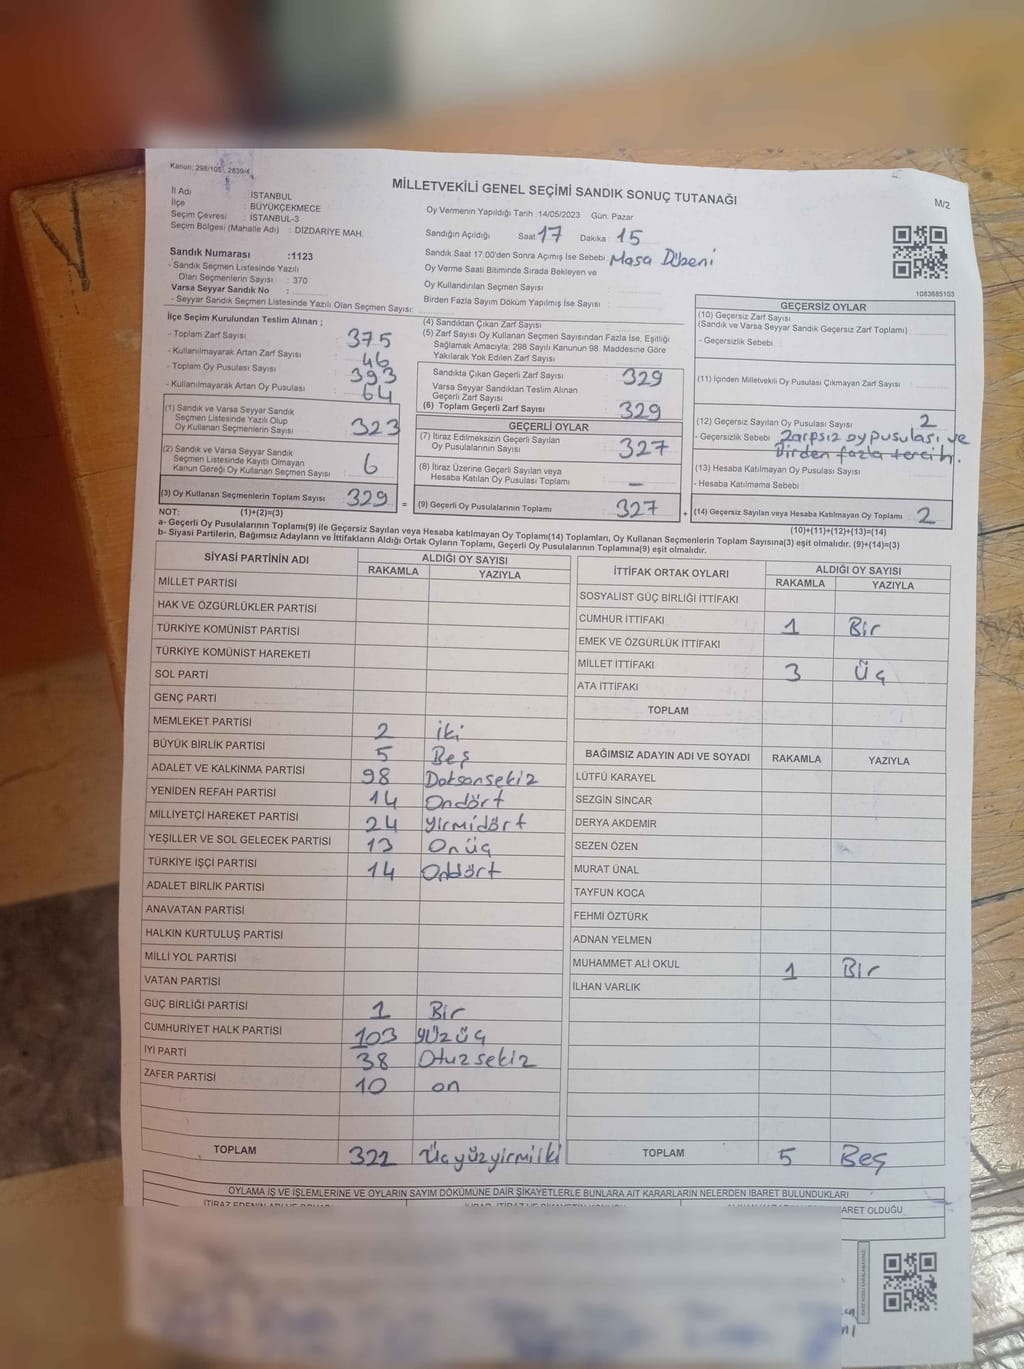 Kanun: 298/105, 2839/4
MİLLETVEKİLİ GENEL SEÇİMİ SANDIK SONUÇ TUTANAĞI
M/2
İl Adı : İSTANBUL
İlçe : BÜYÜKÇEKMECE
Seçim Çevresi : İSTANBUL-3
Seçim Bölgesi (Mahalle Adı) : DİZDARİYE MAH.
Oy Vermenin Yapıldığı Tarih :14/05/2023 Gün: Pazar
Sandığın Açıldığı Saat 17 Dakika : 15
Sandık Saat 17.00'den Sonra Açımış İse Sebebi : Masa Düzeni
Oy Verme Saati Bitiminde Sırada Bekleyen ve
Oy Kullandırılan Seçmen Sayısı :
Birden Fazla Sayım Döküm Yapılmış İse Sayısı :
1083685103
Sandık Numarası :1123
- Sandık Seçmen Listesinde Yazılı
Olan Seçmenlerin Sayısı : 370
Varsa Seyyar Sandık No :
- Seyyar Sandık Seçmen Listesinde Yazılı Olan Seçmen Sayısı:
İlçe Seçim Kurulundan Teslim Alınan ;
- Toplam Zarf Sayısı : 375
- Kullanılmayarak Artan Zarf Sayısı : 46
- Toplam Oy Pusulası Sayısı : 393
- Kullanılmayarak Artan Oy Pusulası : 64
(1) Sandık ve Varsa Seyyar Sandık
Seçmen Listesinde Yazılı Olup
Oy Kullanan Seçmenlerin Sayısı : 323
(2) Sandık ve Varsa Seyyar Sandık
Seçmen Listesinde Kayıtlı Olmayan
Kanun Gereği Oy Kullanan Seçmen Sayısı : 6
(3) Oy Kullanan Seçmenlerin Toplam Sayısı : 329 =
(4) Sandıktan Çıkan Zarf Sayısı
(5) Zarf Sayısı Oy Kullanan Seçmen Sayısından Fazla İse, Eşitliği
Sağlamak Amacıyla, 298 Sayılı Kanunun 98. Maddesine Göre
Yakılarak Yok Edilen Zarf Sayısı
Sandıkta Çıkan Geçerli Zarf Sayısı : 329
Varsa Seyyar Sandıktan Teslim Alınan
Geçerli Zarf Sayısı :
(6) Toplam Geçerli Zarf Sayısı : 329
GEÇERLİ OYLAR
(7) İtiraz Edilmeksizin Geçerli Sayılan
Oy Pusulalarının Sayısı : 327
(8) İtiraz Üzerine Geçerli Sayılan veya
Hesaba Katılan Oy Pusulası Toplamı : –
(9) Geçerli Oy Pusulalarının Toplamı : 327 +
GEÇERSİZ OYLAR
(10) Geçersiz Zarf Sayısı
(Sandık ve Varsa Seyyar Sandık Geçersiz Zarf Toplamı)
- Geçersizlik Sebebi :
(11) İçinden Milletvekili Oy Pusulası Çıkmayan Zarf Sayısı :
(12) Geçersiz Sayılan Oy Pusulası Sayısı : 2
- Geçersizlik Sebebi : Zarpsız oy pusulası ve
birden fazla tercih.
(13) Hesaba Katılmayan Oy Pusulası Sayısı :
- Hesaba Katılmama Sebebi :
(14) Geçersiz Sayılan veya Hesaba Katılmayan Oy Toplamı : 2
NOT: (1)+(2)=(3)
(10)+(11)+(12)+(13)=(14)
a- Geçerli Oy Pusulalarının Toplamı(9) ile Geçersiz Sayılan veya Hesaba katılmayan Oy Toplamı(14) Toplamları, Oy Kullanan Seçmenlerin Toplam Sayısına(3) eşit olmalıdır. (9)+(14)=(3)
b- Siyasi Partilerin, Bağımsız Adayların ve İttifakların Aldığı Ortak Oyların Toplamı, Geçerli Oy Pusulalarının Toplamına(9) eşit olmalıdır.
SİYASİ PARTİNİN ADI ALDIĞI OY SAYISI
RAKAMLA YAZIYLA
MİLLET PARTİSİ
HAK VE ÖZGÜRLÜKLER PARTİSİ
TÜRKİYE KOMÜNİST PARTİSİ
TÜRKİYE KOMÜNİST HAREKETİ
SOL PARTİ
GENÇ PARTİ
MEMLEKET PARTİSİ 2 iki
BÜYÜK BİRLİK PARTİSİ 5 Beş
ADALET VE KALKINMA PARTİSİ 98 Doksansekiz
YENİDEN REFAH PARTİSİ 14 Ondört
MİLLİYETÇİ HAREKET PARTİSİ 24 Yirmidört
YEŞİLLER VE SOL GELECEK PARTİSİ 13 Onüç
TÜRKİYE İŞÇİ PARTİSİ 14 Ondört
ADALET BİRLİK PARTİSİ
ANAVATAN PARTİSİ
HALKIN KURTULUŞ PARTİSİ
MİLLİ YOL PARTİSİ
VATAN PARTİSİ
GÜÇ BİRLİĞİ PARTİSİ 1 Bir
CUMHURİYET HALK PARTİSİ 103 yüzüç
İYİ PARTİ 38 Otuzsekiz
ZAFER PARTİSİ 10 on
TOPLAM 322 Üçyüzyirmiiki
İTTİFAK ORTAK OYLARI ALDIĞI OY SAYISI
RAKAMLA YAZIYLA
SOSYALİST GÜÇ BİRLİĞİ İTTİFAKI
CUMHUR İTTİFAKI 1 Bir
EMEK VE ÖZGÜRLÜK İTTİFAKI
MİLLET İTTİFAKI 3 Üç
ATA İTTİFAKI
TOPLAM
BAĞIMSIZ ADAYIN ADI VE SOYADI RAKAMLA YAZIYLA
LÜTFÜ KARAYEL
SEZGİN SİNCAR
DERYA AKDEMİR
SEZEN ÖZEN
MURAT ÜNAL
TAYFUN KOCA
FEHMİ ÖZTÜRK
ADNAN YELMEN
MUHAMMET ALİ OKUL 1 Bir
İLHAN VARLIK
TOPLAM 5 Beş
OYLAMA İŞ VE İŞLEMLERİNE VE OYLARIN SAYIM DÖKÜMÜNE DAİR ŞİKAYETLERLE BUNLARA AİT KARARLARIN NELERDEN İBARET BULUNDUKLARI
ARET OLDUĞU